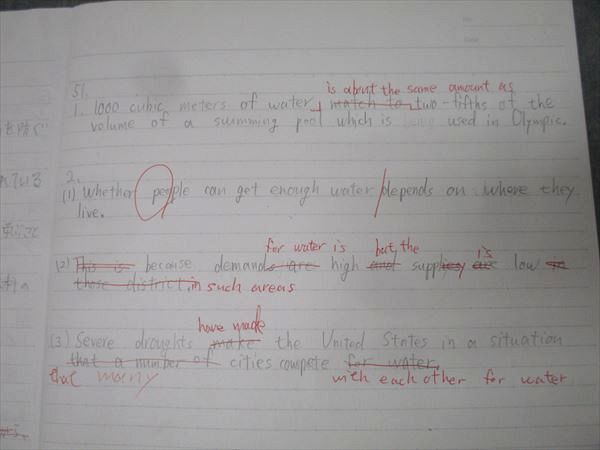 51.
is about the same amount as
1. 1000 cubic meters of water match to two-fifths of the
volume of a swimming pool which is used in Olympic.
2.
(1) Whether people can get enough water depends on where they
live.
for water is but the is
(2) This is because demands are high and supplies are low in
those district, in such areas
have made
(3) Severe droughts make the United States in a situation
that a number of cities compete for water.
that many with each other for water